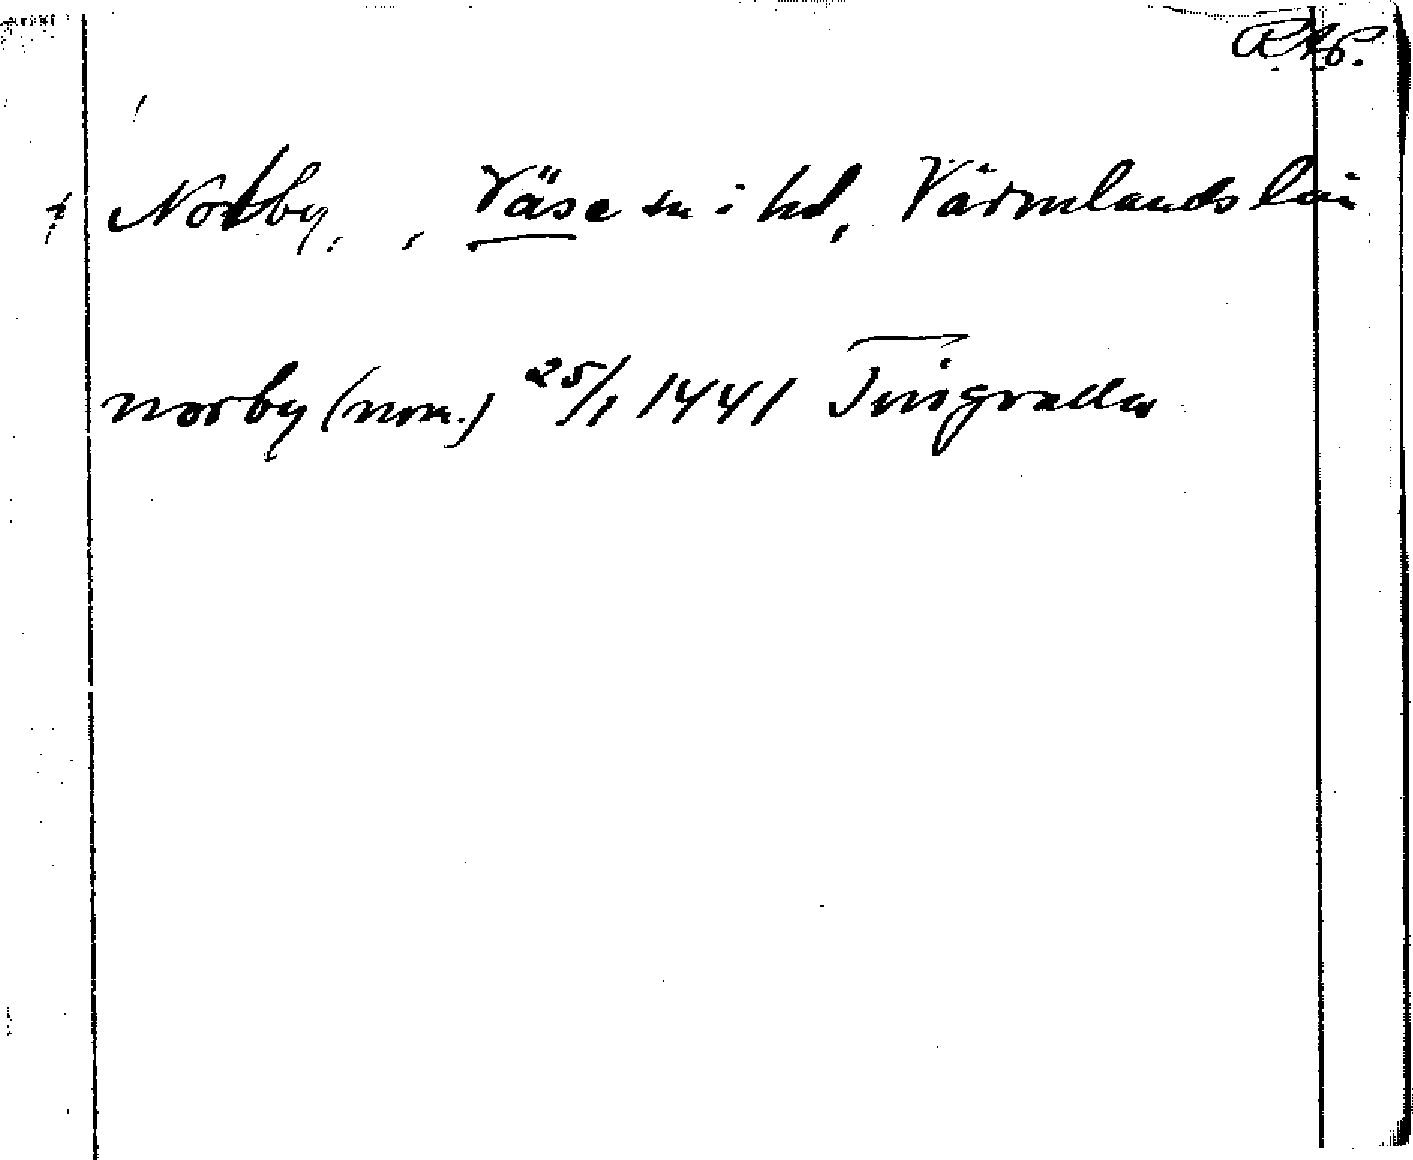 R.Ap.
† Norby, , Väse sn i hd, Värmlands län
norby (nom.) 25/1 1441 Tingvalla